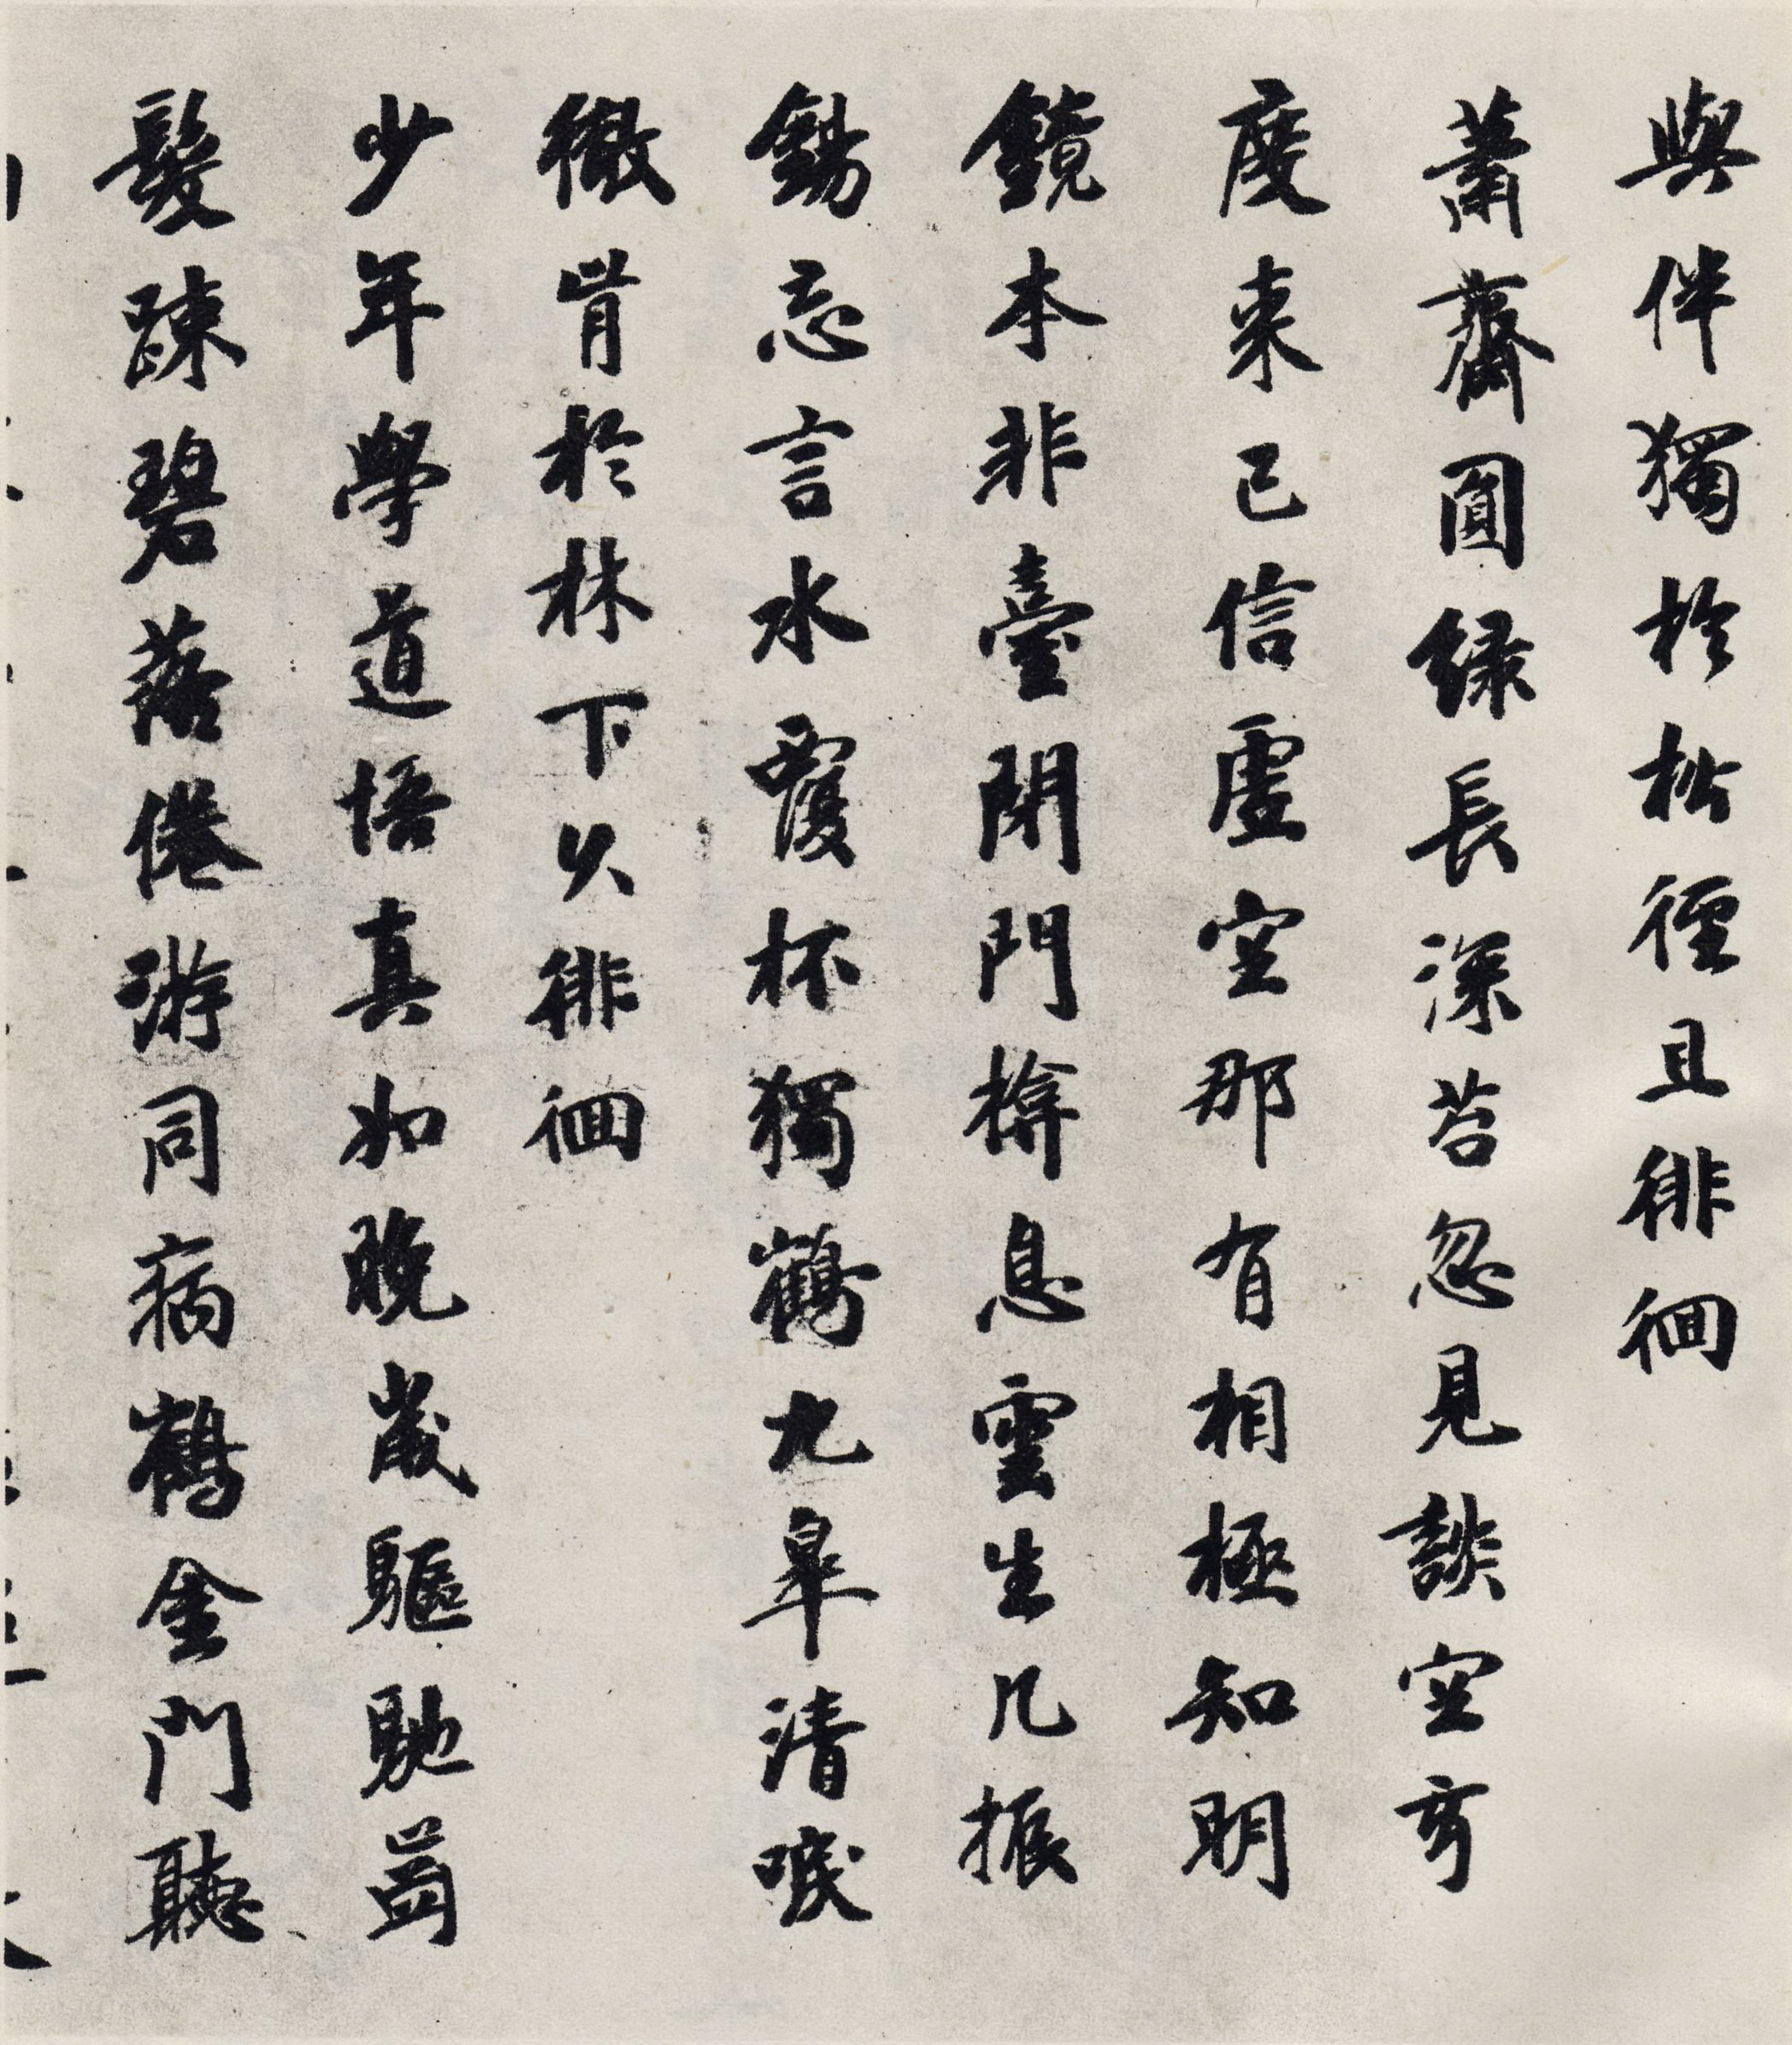 與伴獨於松徑且徘徊
蕭齋圓綠長深苔忽見談空亨
度来已信虛空那有相極知明
鏡本非臺閉門揜息雲生几振
錫忘言水覆杯獨鶴九皋清唳
徹肯於林下久徘徊
少年學道悟真如晚歲驅馳齒
髮踈碧落倦游同病鶴金門聽